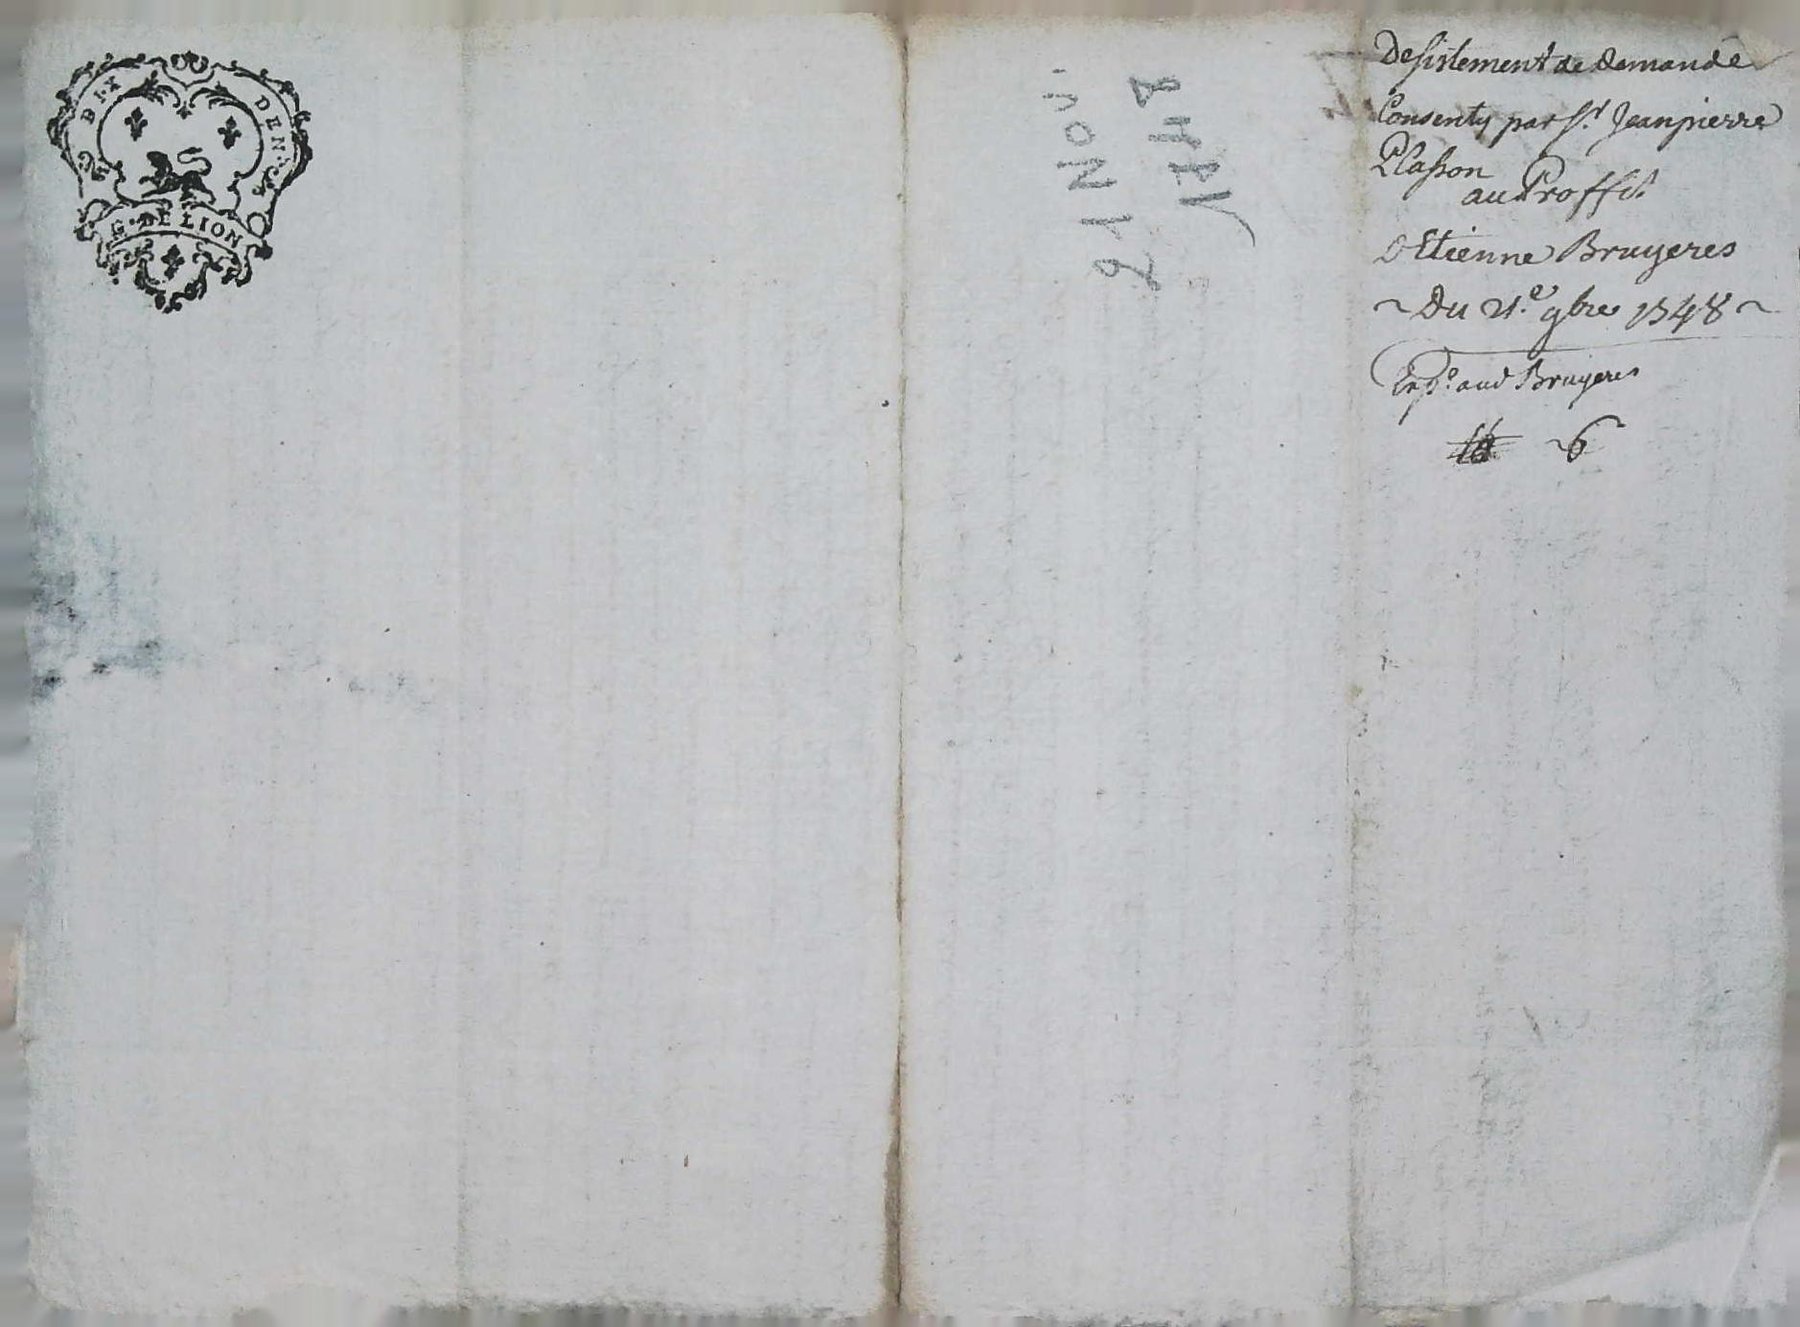 DIX DEN.RS
G. DE LION
21 Nov.
1748
Desistement de demande
Consenty par Sr. Jeanpierre
Plasson
au Proffit
d'Etienne Bruyeres
~ Du 21.e 9bre 1748 ~
Exp.e aud Bruyeres
6